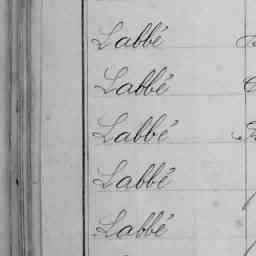 Labbé
Labbé
Labbé
Labbé
Labbé